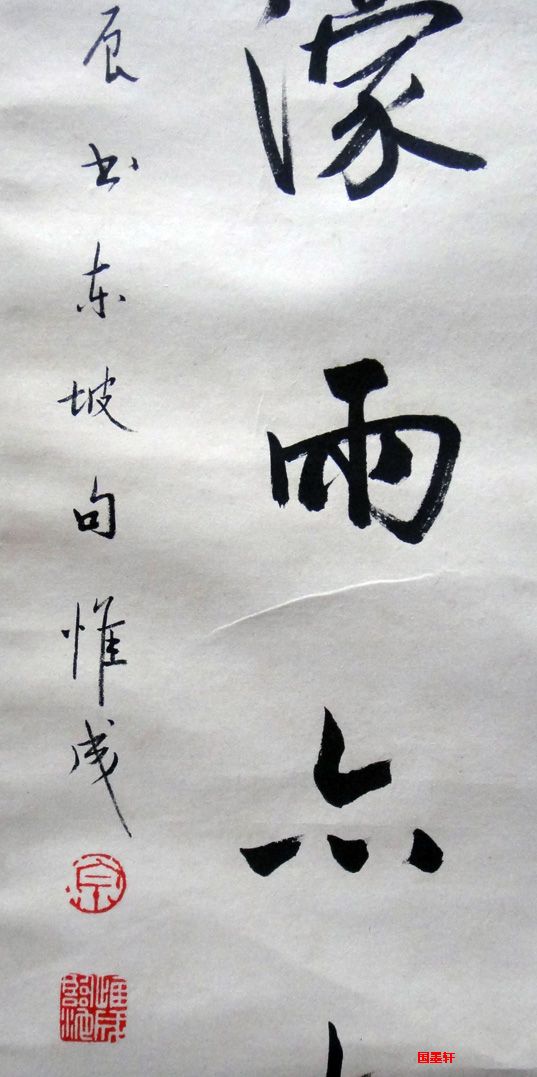 濛雨亦
辰书东坡句惟成
国墨轩